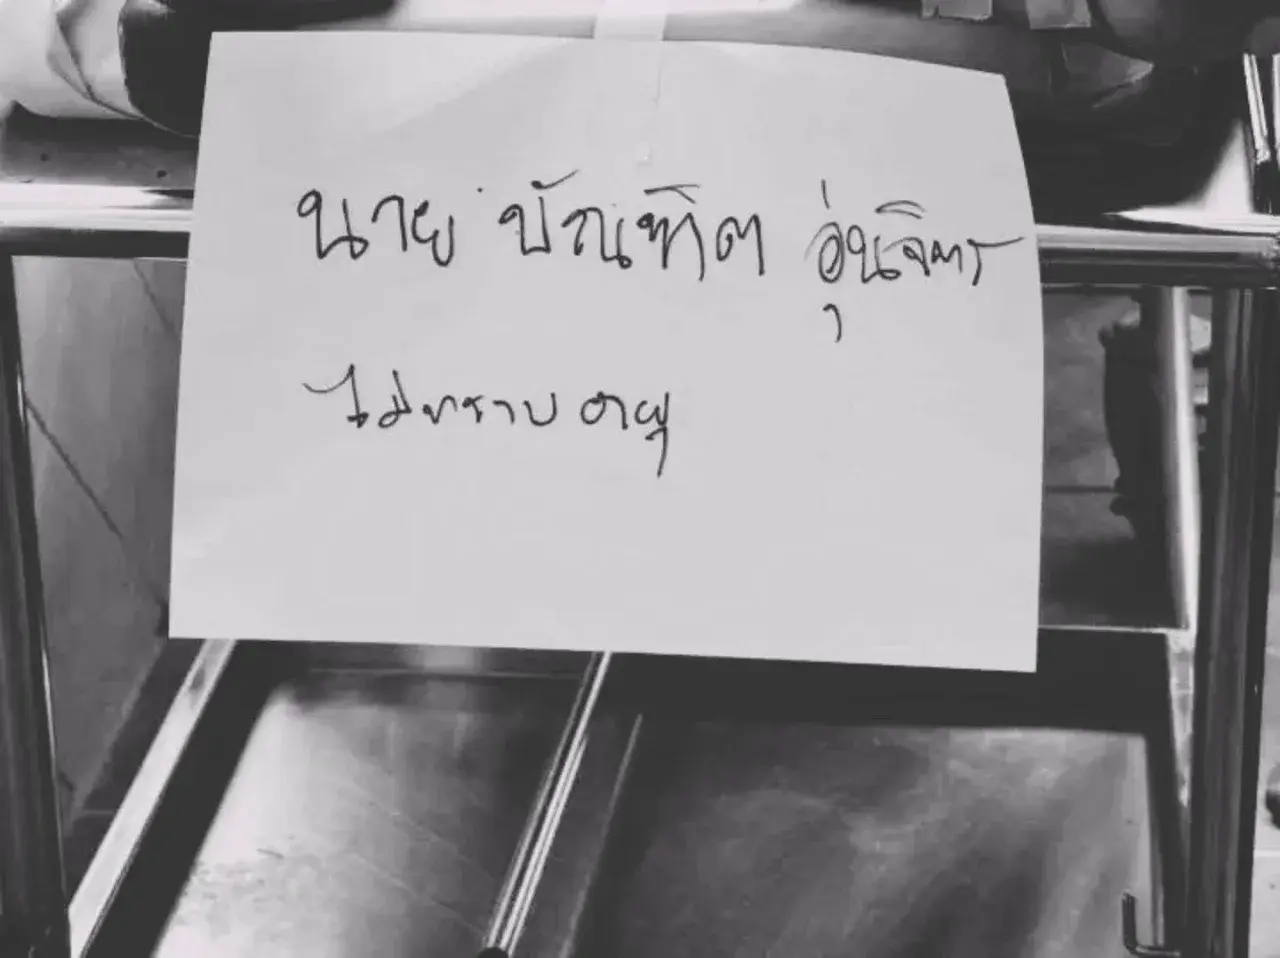 นาย บัณฑิต อุ่นจิตร
ไม่ทราบ อายุ